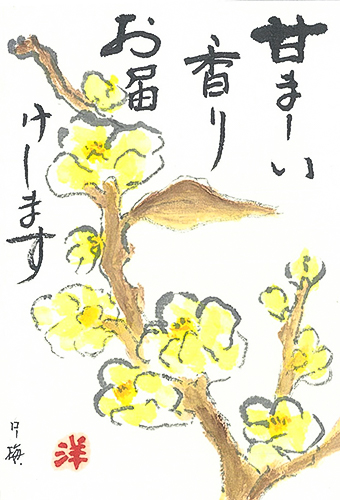 甘まーい
香り
お届
けします
洋